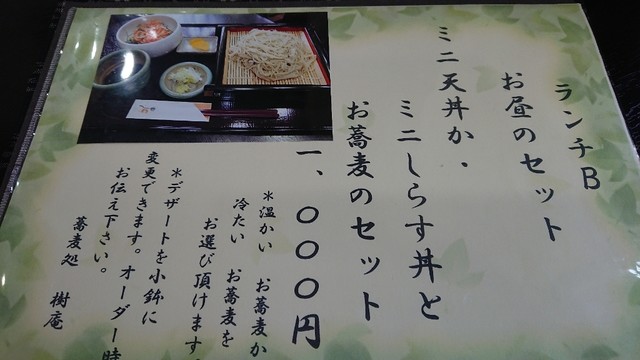 ランチB
お昼のセット
ミニ天丼か・
ミニしらす丼と
お蕎麦のセット
一、〇〇〇円
＊温かい お蕎麦か
冷たい お蕎麦を
お選び頂けます
＊デザートを小鉢に
変更できます。オーダー時
お伝え下さい。
蕎麦処 樹庵